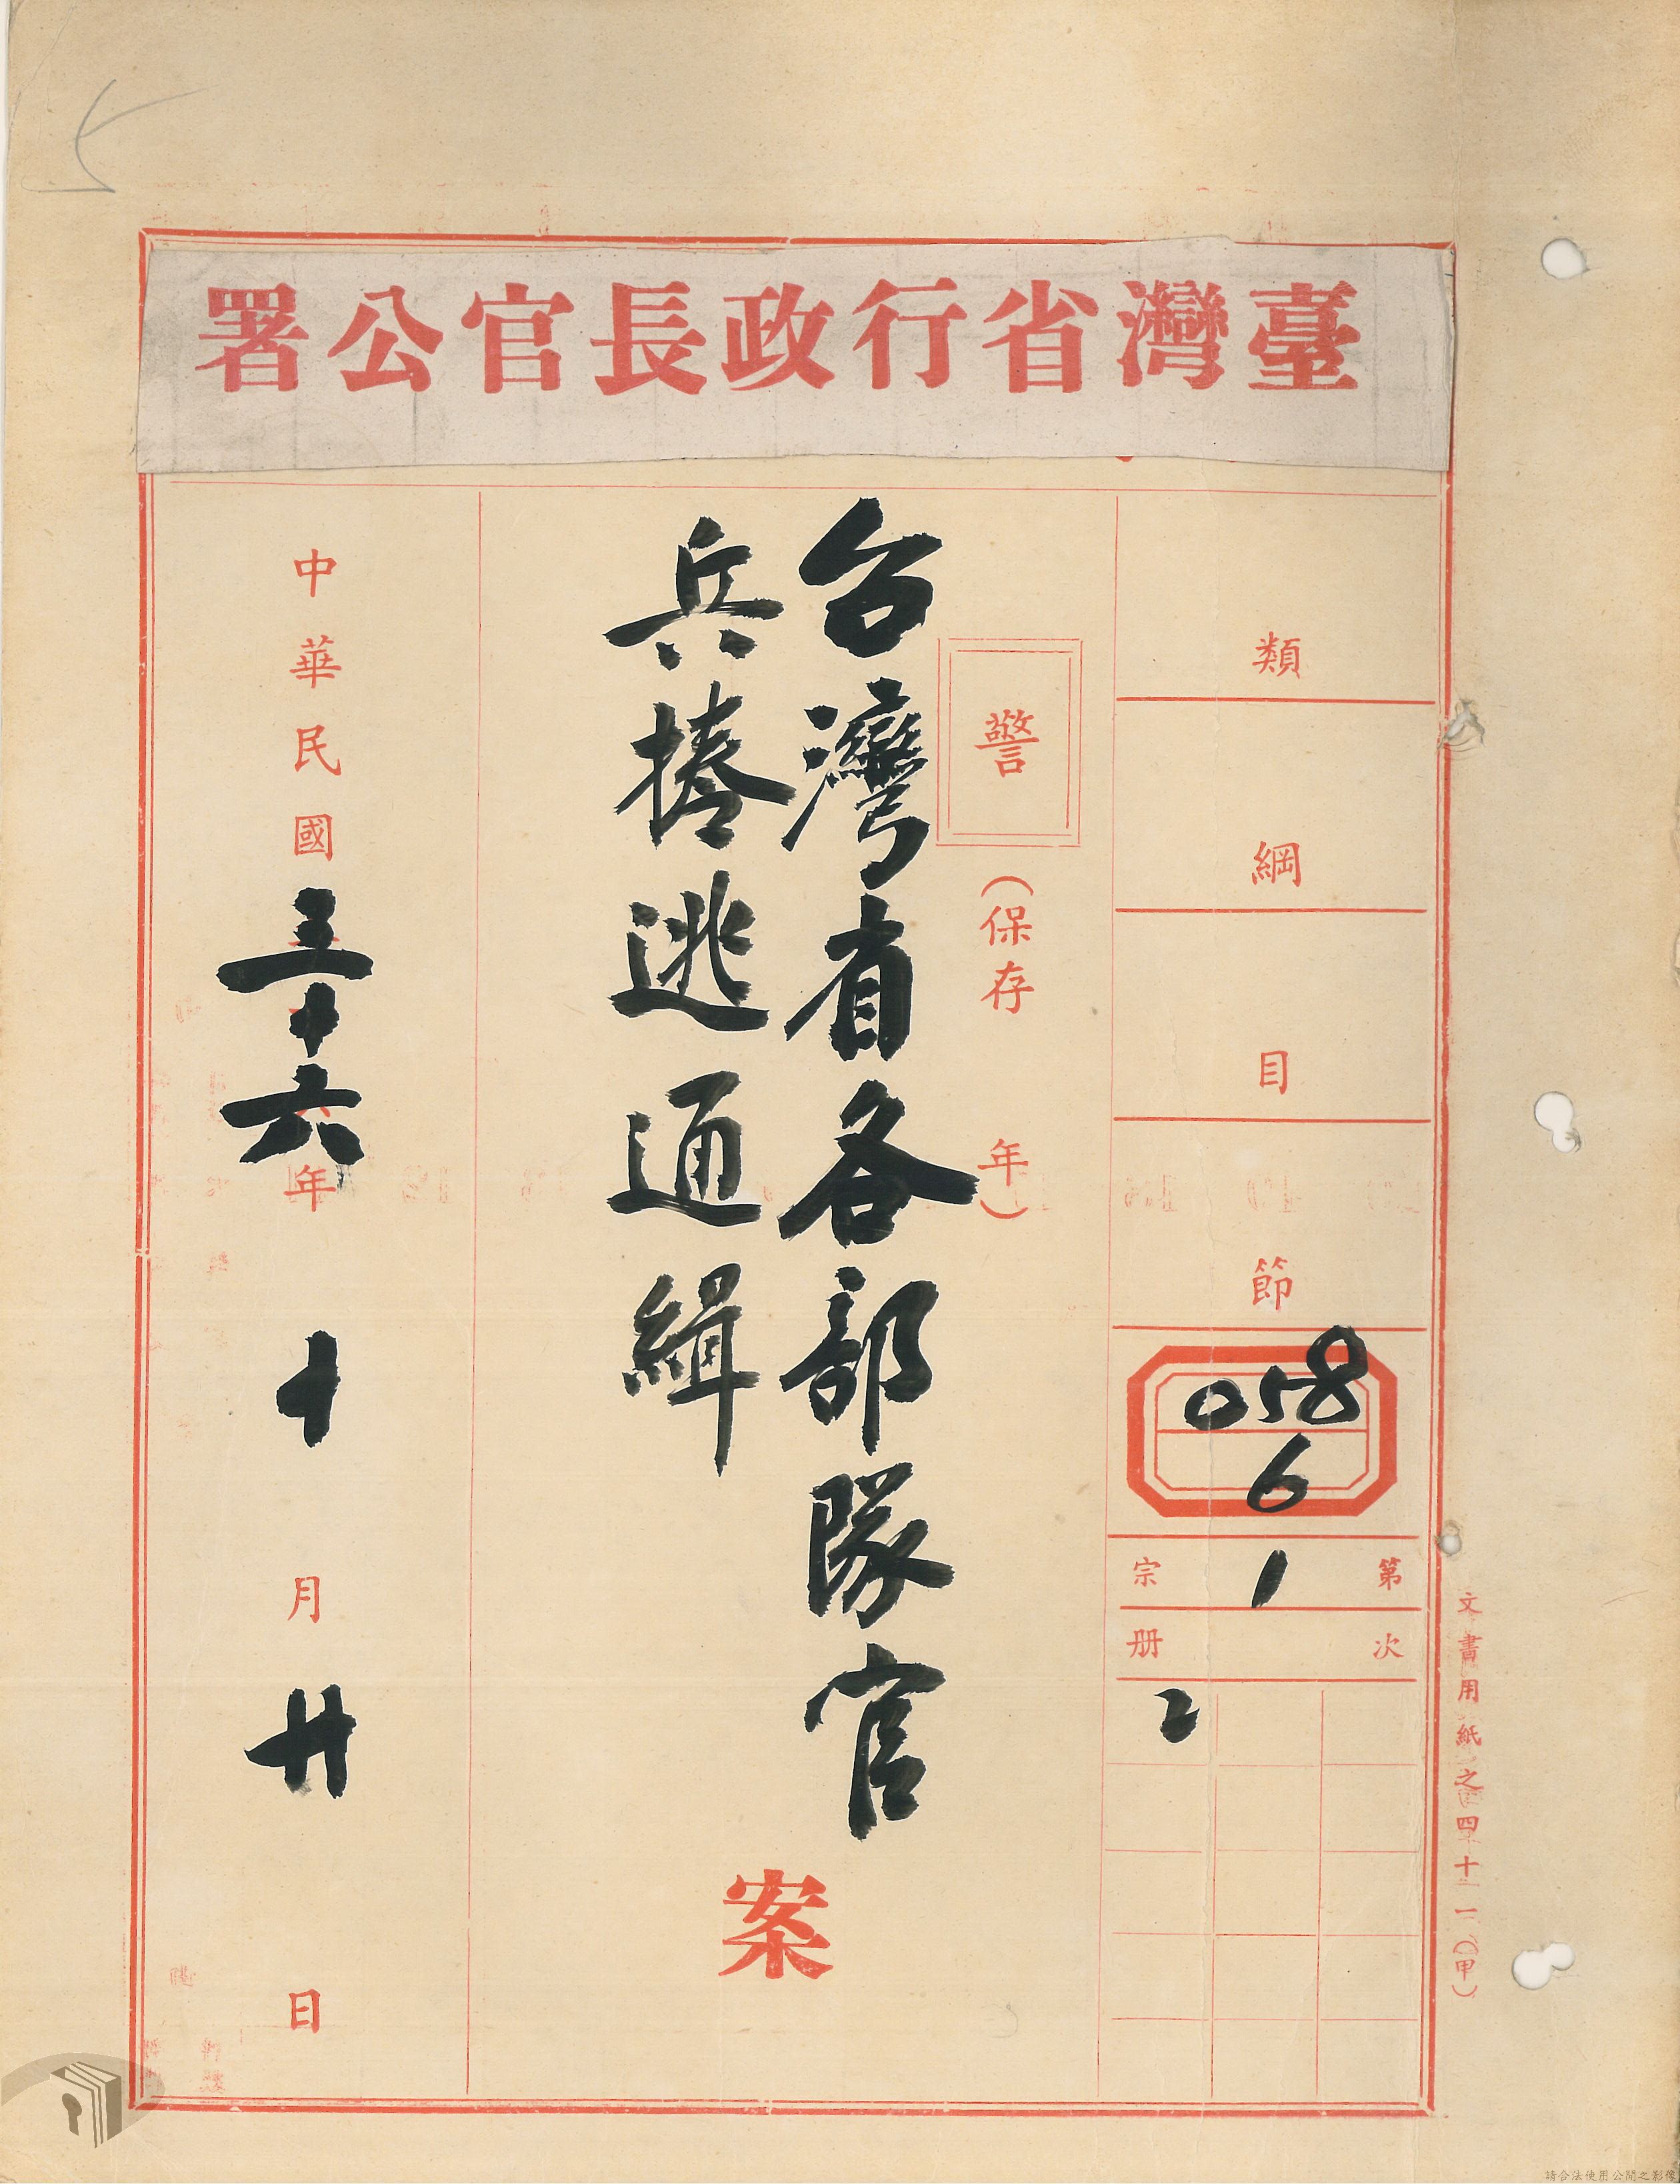 臺灣省行政長官公署
類
綱
目
節
058
6
第1宗
次册
2
警
(保存 年)
台灣省各部隊官
兵捲逃通緝
案
中華民國三十六年十月廿日
文書用紙之四十一(甲)
請合法使用公開之影像